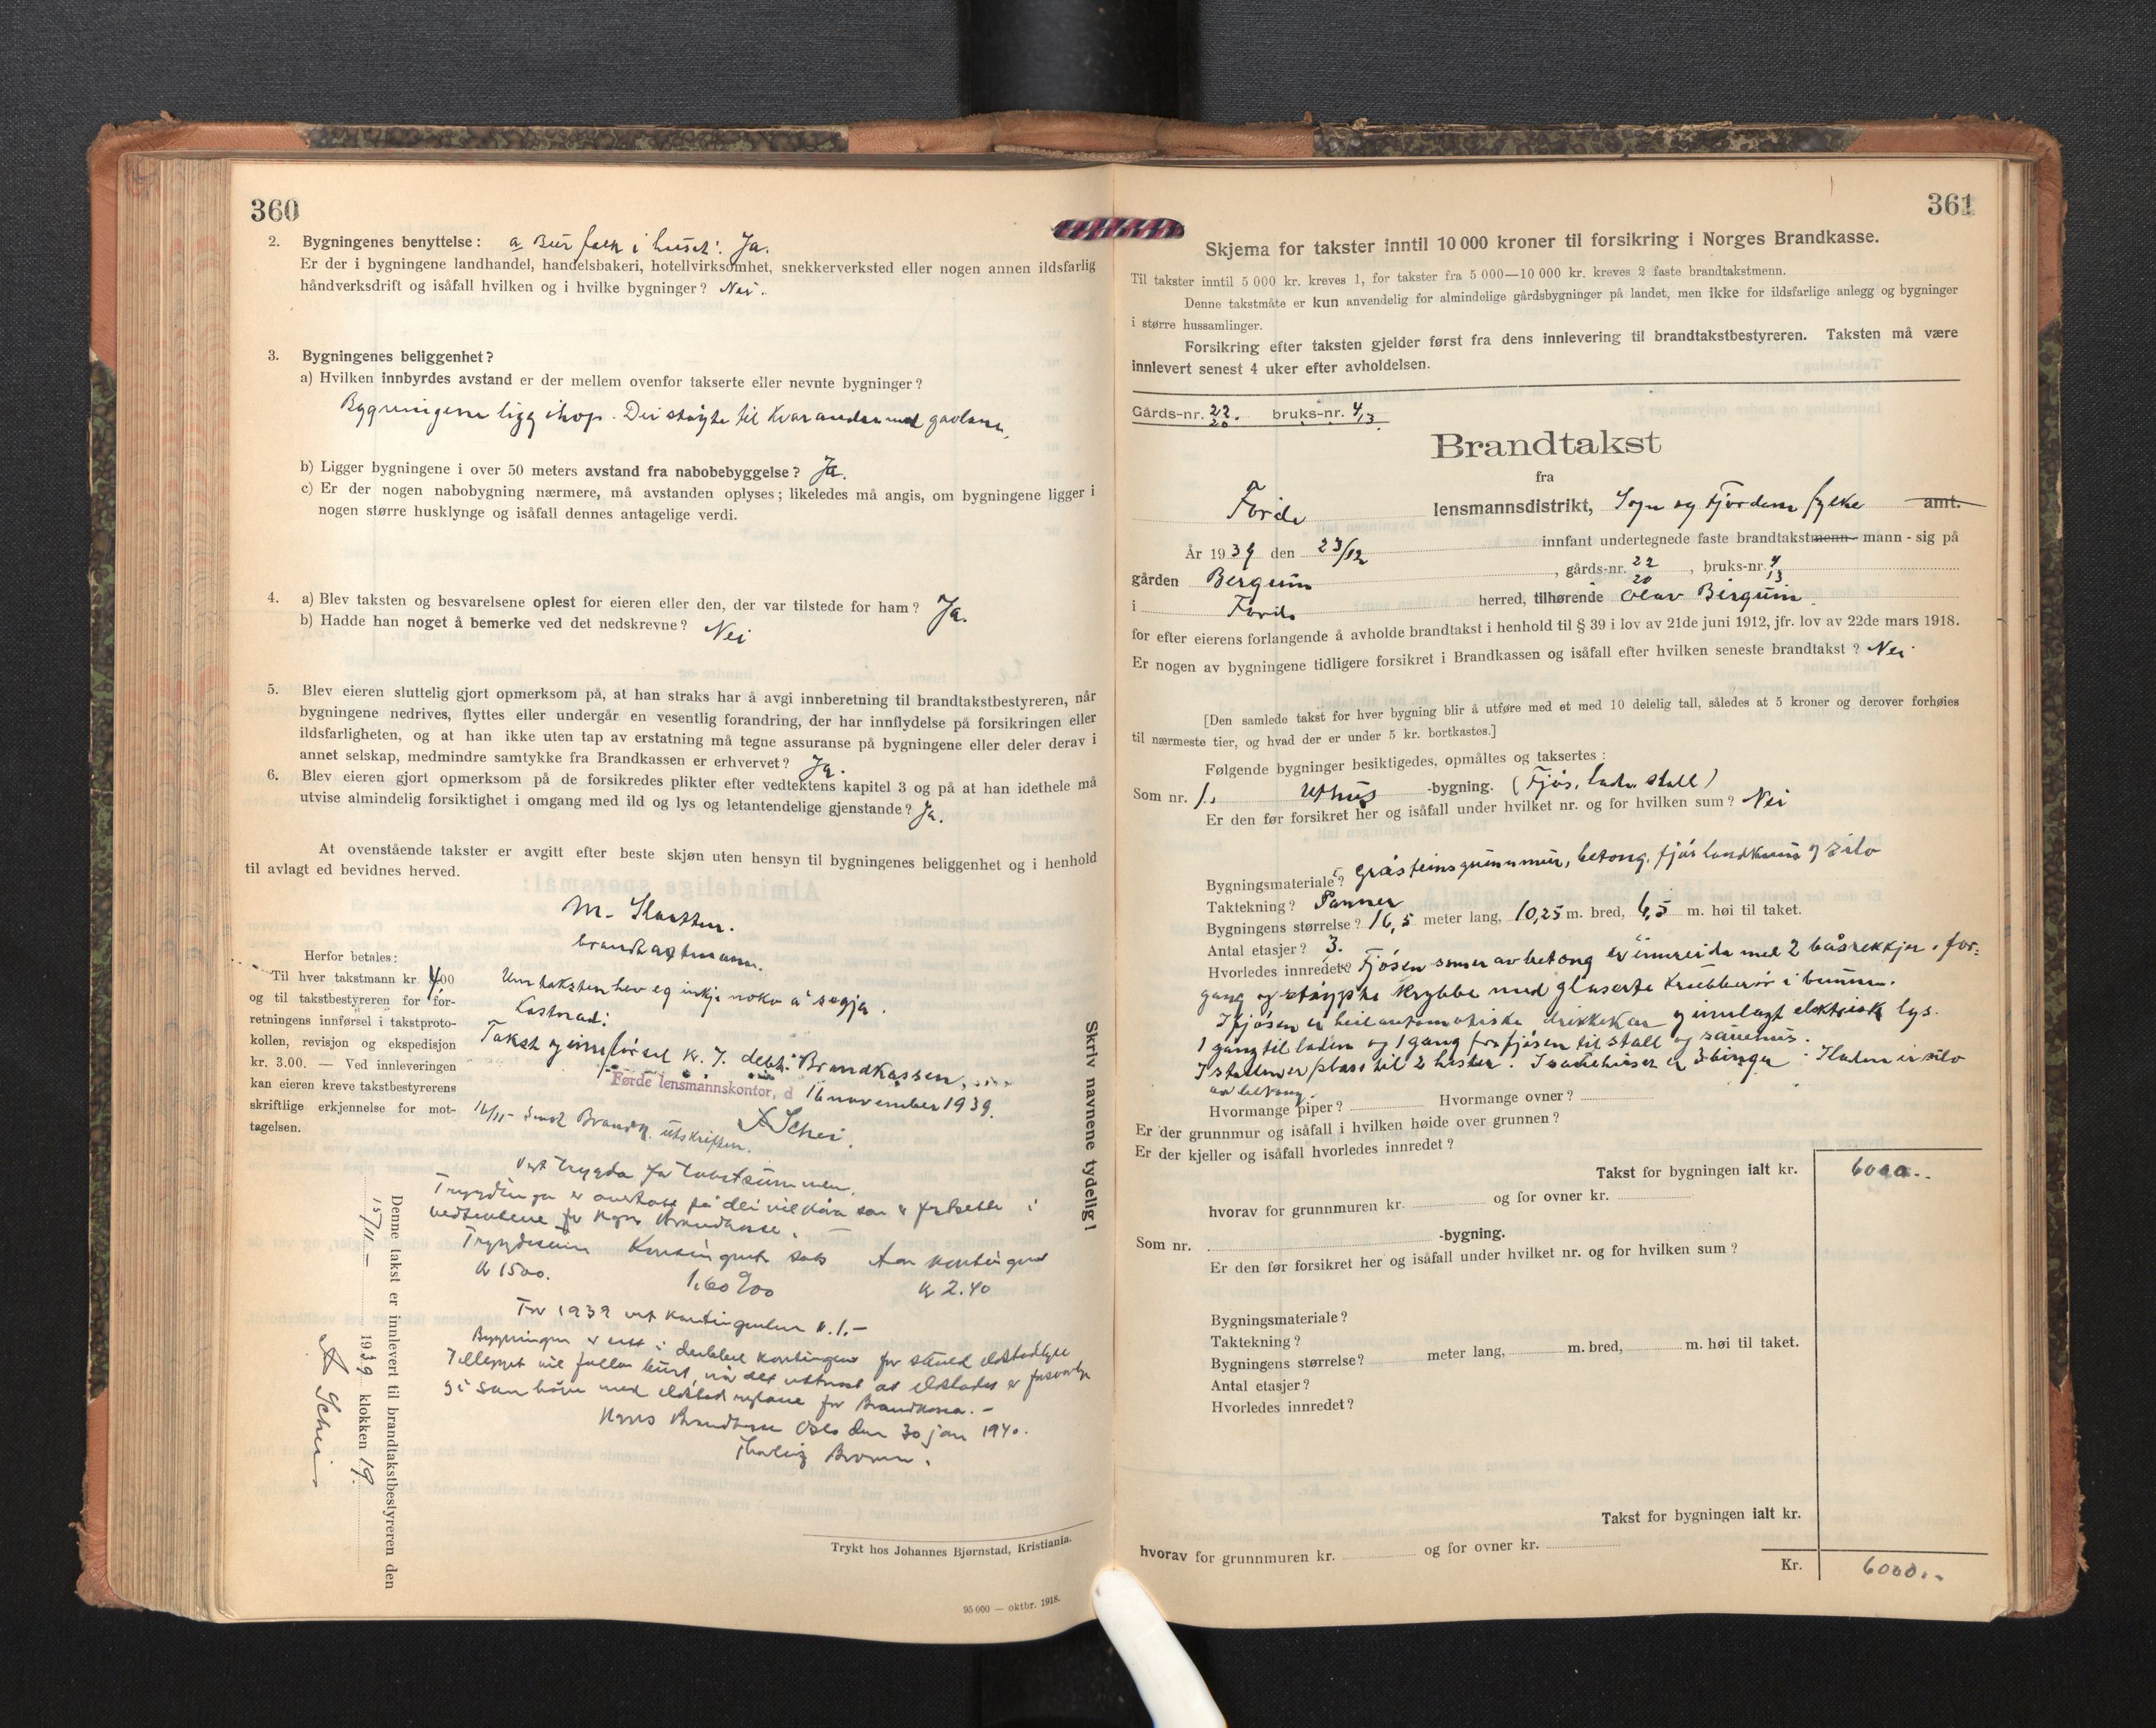 360
2. Bygningenes benyttelse: a Bur folk i huset? Ja.
Er der i bygningene landhandel, handelsbakeri, hotellvirksomhet, snekkerverksted eller nogen annen ildsfarlig
håndverksdrift og isåfall hvilken og i hvilke bygninger? Nei.
3. Bygningenes beliggenhet?
a) Hvilken innbyrdes avstand er der mellem ovenfor takserte eller nevnte bygninger?
Bygningene ligg ihop. Dei støyte til kvarandre med gavlane.
b) Ligger bygningene i over 50 meters avstand fra nabobebyggelse? Ja.
c) Er der nogen nabobygning nærmere, må avstanden oplyses; likeledes må angis, om bygningene ligger i
nogen større husklynge og isåfall dennes antagelige verdi.
4. a) Blev taksten og besvarelsene oplest for eieren eller den, der var tilstede for ham? Ja.
b) Hadde han noget å bemerke ved det nedskrevne? Nei
5. Blev eieren sluttelig gjort opmerksom på, at han straks har å avgi innberetning til brandtakstbestyreren, når
bygningene nedrives, flyttes eller undergår en vesentlig forandring, der har innflydelse på forsikringen eller
ildsfarligheten, og at han ikke uten tap av erstatning må tegne assuranse på bygningene eller deler derav i
annet selskap, medmindre samtykke fra Brandkassen er erhvervet? Ja.
6. Blev eieren gjort opmerksom på de forsikredes plikter efter vedtektens kapitel 3 og på at han idethele må
utvise almindelig forsiktighet i omgang med ild og lys og letantendelige gjenstande? Ja.
At ovenstående takster er avgitt efter beste skjøn uten hensyn til bygningenes beliggenhet og i henhold
til avlagt ed bevidnes herved.
brandtakstmann.
Herfor betales:
Til hver takstmann kr. 4.00
og til takstbestyreren for for-
retningens innførsel i takstproto-
kollen, revisjon og ekspedisjon
kr. 3.00. — Ved innleveringen
kan eieren kreve takstbestyrerens
skriftlige erkjennelse for mot-
tagelsen.
Um taksten hev eg inkje noko å segja.
Kostnad:
Takst og innførsel kr. 7. debit. Brandkassen.
Førde lensmannskontor, d 16 november 1939.
A Schei.
16/11 - sendt Brandk. utskriften.
Vert trygda for takstsummen.
Trygdinga er overteke på dei vilkåra som er fastsette i
vedtektene for Nores Brandkasse.
Trygdesum Kontingent sats Aar kontingent
kr 1500. 1,60 ‰ kr 2.40
For 1939 vert kontingenten kr. 1.-
Nores Brandkasse Oslo den 30 jan 1940.
Denne takst er innlevert til brandtakstbestyreren den
15/11 – 1939 klokken 19.
A Schei
Skriv navnene tydelig!
Trykt hos Johannes Bjørnstad, Kristiania.
95 000 — oktbr. 1918.
361
Skjema for takster inntil 10 000 kroner til forsikring i Norges Brandkasse.
Til takster inntil 5 000 kr. kreves 1, for takster fra 5 000—10 000 kr. kreves 2 faste brandtakstmenn.
Denne takstmåte er kun anvendelig for almindelige gårdsbygninger på landet, men ikke for ildsfarlige anlegg og bygninger
i større hussamlinger.
Forsikring efter taksten gjelder først fra dens innlevering til brandtakstbestyreren. Taksten må være
innlevert senest 4 uker efter avholdelsen.
Gårds-nr. 22. 20 bruks-nr. 4, 13
Brandtakst
fra
Førde lensmannsdistrikt, Sogn og Fjordane fylke amt.
År 1939 den 23/12 innfant undertegnede faste brandtakstmenn mann - sig på
gården Bergum, gårds-nr. 22 20, bruks-nr. 4 13
i Førde herred, tilhørende Olav Bergum
for efter eierens forlangende å avholde brandtakst i henhold til § 39 i lov av 21de juni 1912, jfr. lov av 22de mars 1918.
Er nogen av bygningene tidligere forsikret i Brandkassen og isåfall efter hvilken seneste brandtakst? Nei
[Den samlede takst for hver bygning blir å utføre med et med 10 delelig tall, således at 5 kroner og derover forhøies
til nærmeste tier, og hvad der er under 5 kr. bortkastes.]
Følgende bygninger besiktigedes, opmåltes og taksertes:
Som nr. 1. Uthus -bygning. (Fjøs, lade, stall)
Er den før forsikret her og isåfall under hvilket nr. og for hvilken sum? Nei
Bygningsmateriale? Gråsteinsgrunnmur, betong, fjøs landkum og silo
Taktekning? Panner
Bygningens størrelse? 16,5 meter lang, 10,25 m. bred, 6,5 m. høi til taket.
Antal etasjer? 3.
Hvorledes innredet? Fjøsen som er av betong er innreida med 2 båsrekkjer, for-
gang og støypte krybbe med glaserte krubberør i bunnen.
I fjøsen er heilautomatiske drikkekar og innlagt elektrisk lys.
1 gang til laden og 1 gang fra fjøsen til stall og sauehus.
I stallen er plass til 2 hester. I sauehuset er 3 binger. I laden er silo
av betong.
Hvormange piper? Hvormange ovner?
Er der grunnmur og isåfall i hvilken høide over grunnen?
Er der kjeller og isåfall hvorledes innredet?
Takst for bygningen ialt kr. 6000..
hvorav for grunnmuren kr. og for ovner kr.
Som nr. -bygning.
Er den før forsikret her og isåfall under hvilket nr. og for hvilken sum?
Bygningsmateriale?
Taktekning?
Bygningens størrelse? meter lang, m. bred, m. høi til taket.
Antal etasjer?
Hvorledes innredet?
Takst for bygningen ialt kr.
hvorav for grunnmuren kr. og for ovner kr.
Kr. 6000..